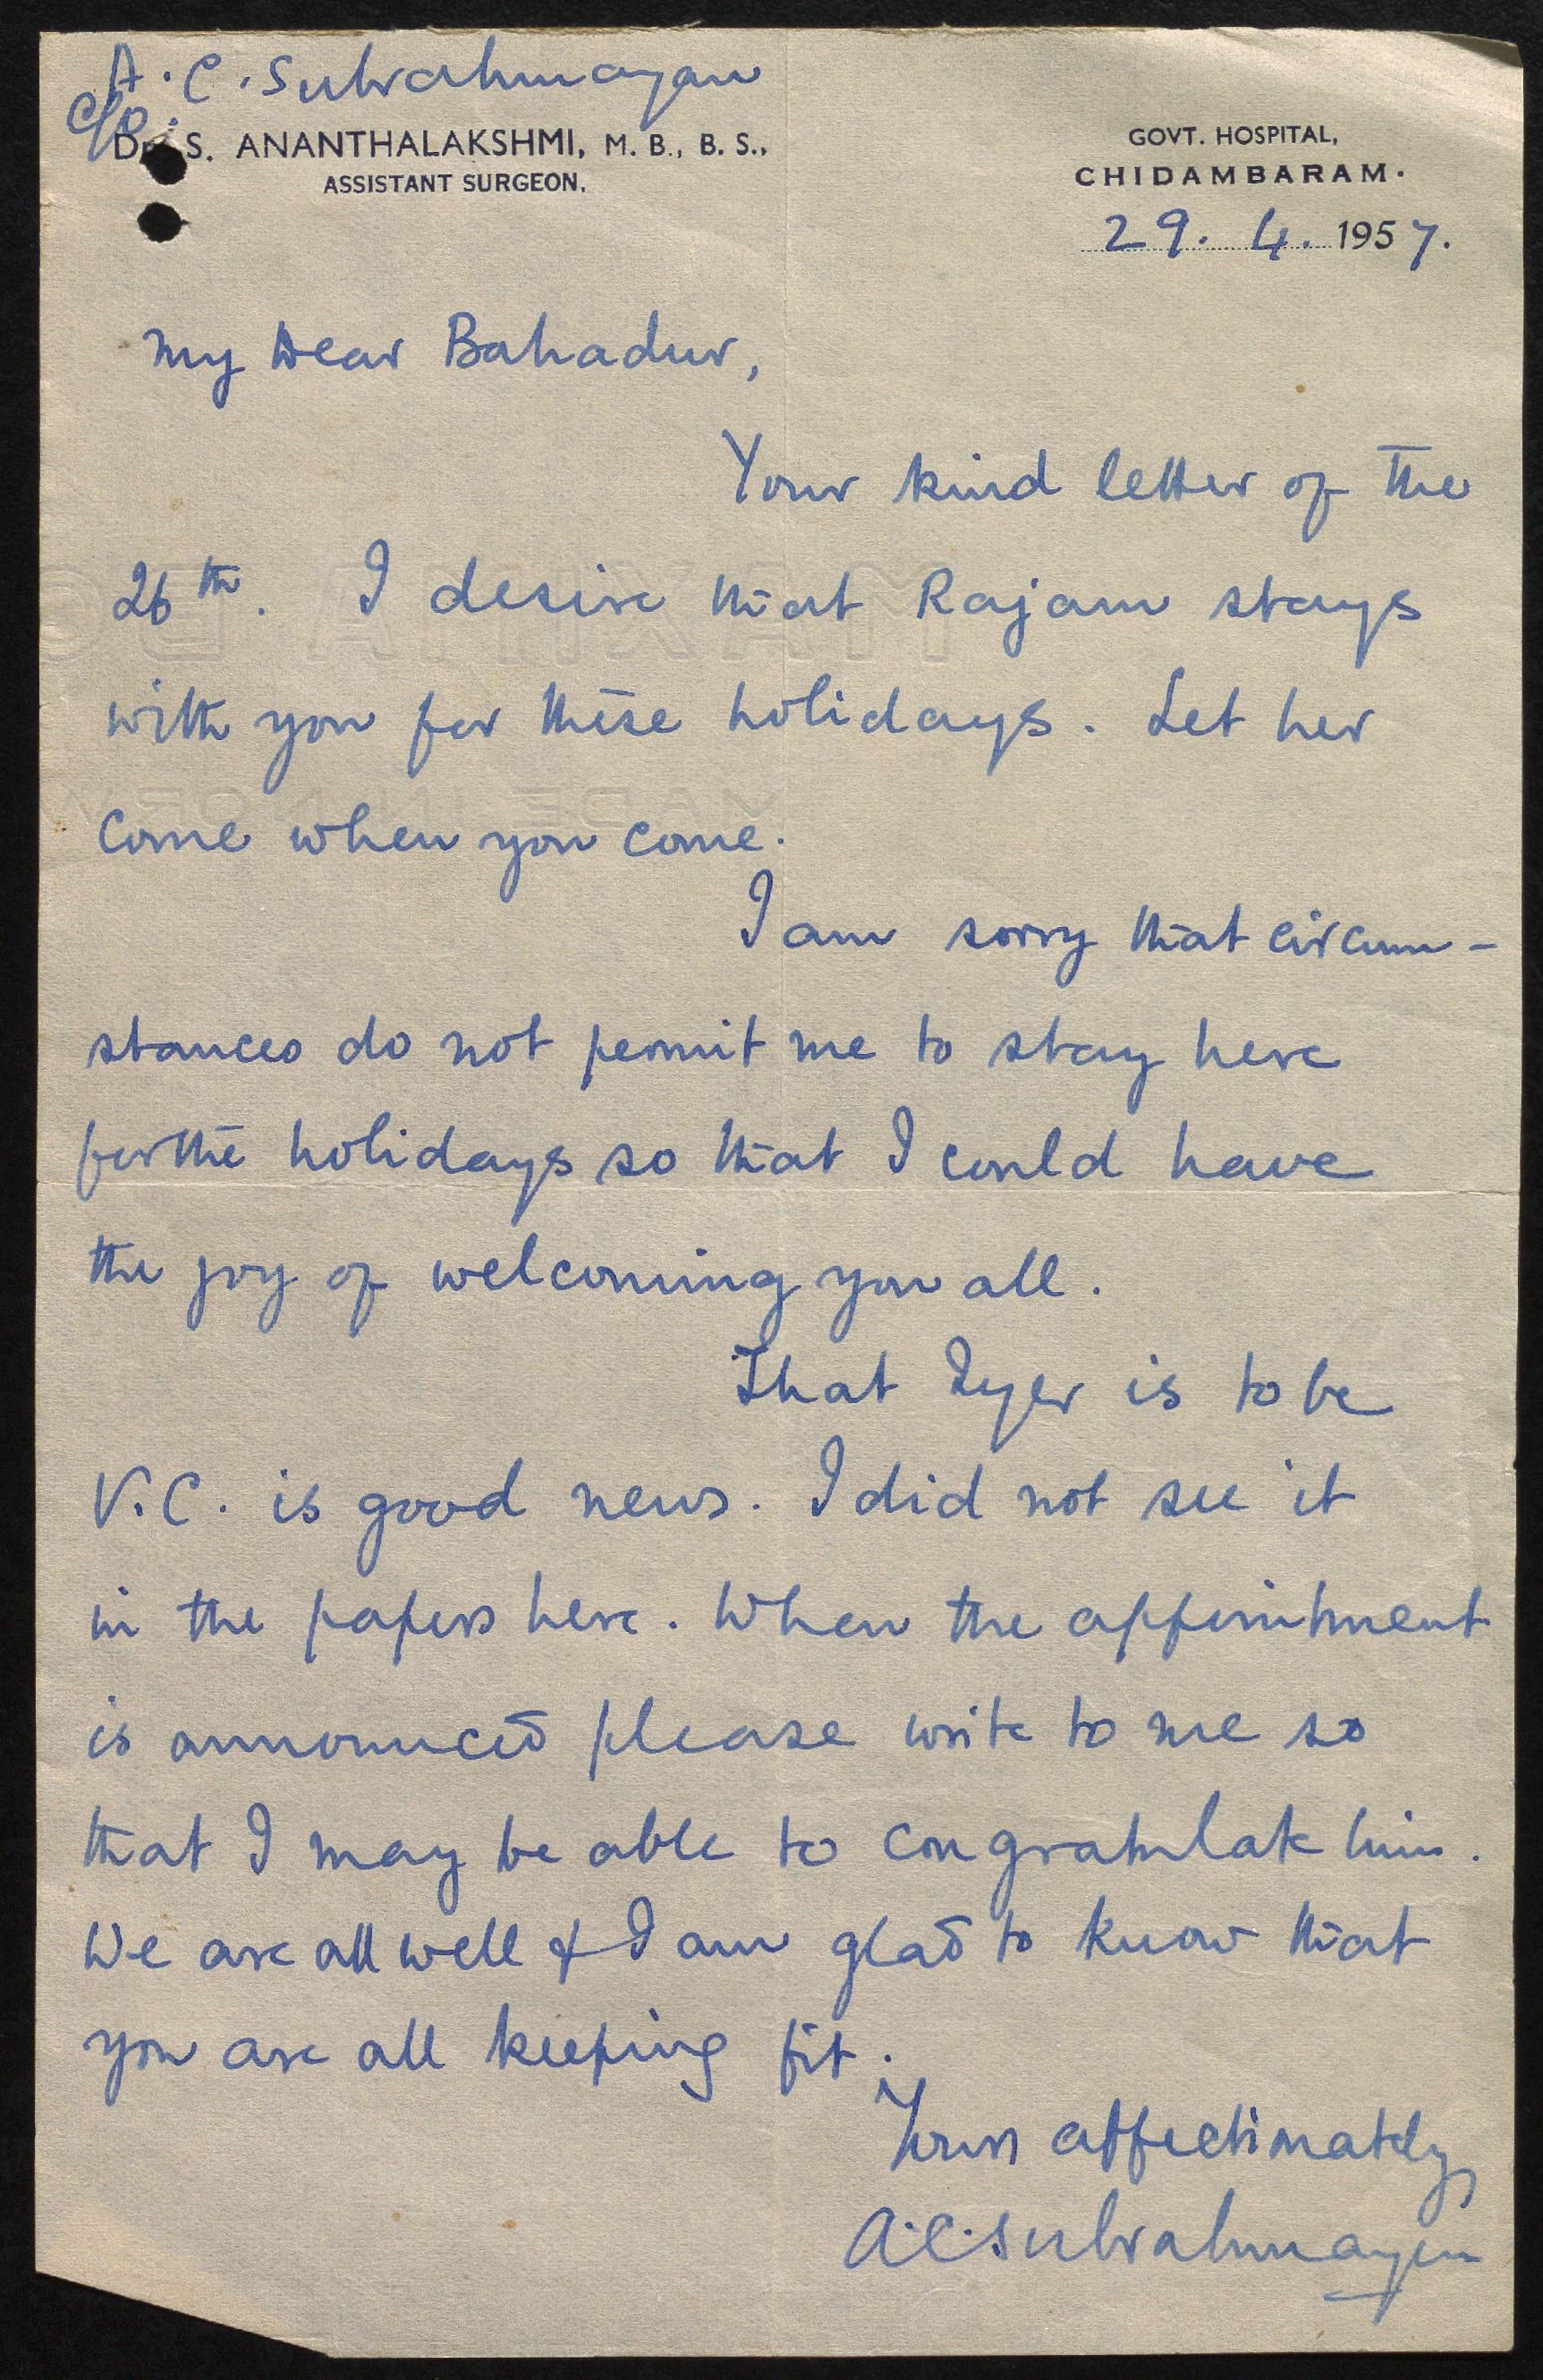 A. C. Subrahmanyan
c/o.
Dr. S. ANANTHALAKSHMI, M. B., B. S.,
ASSISTANT SURGEON.
GOVT. HOSPITAL,
CHIDAMBARAM.
29. 4. 1957.
My Dear Bahadur,
Your kind letter of the
26th. I desire that Rajam stays
with you for these holidays. Let her
come when you come.
I am sorry that circum-
stances do not permit me to stay here
for the holidays so that I could have
the joy of welcoming you all.
That Iyer is to be
V.C. is good news. I did not see it
in the papers here. When the appointment
is announced please write to me so
that I may be able to congratulate him.
We are all well & I am glad to know that
you are all keeping fit.
Yours affectionately,
A.C. Subrahmanyan